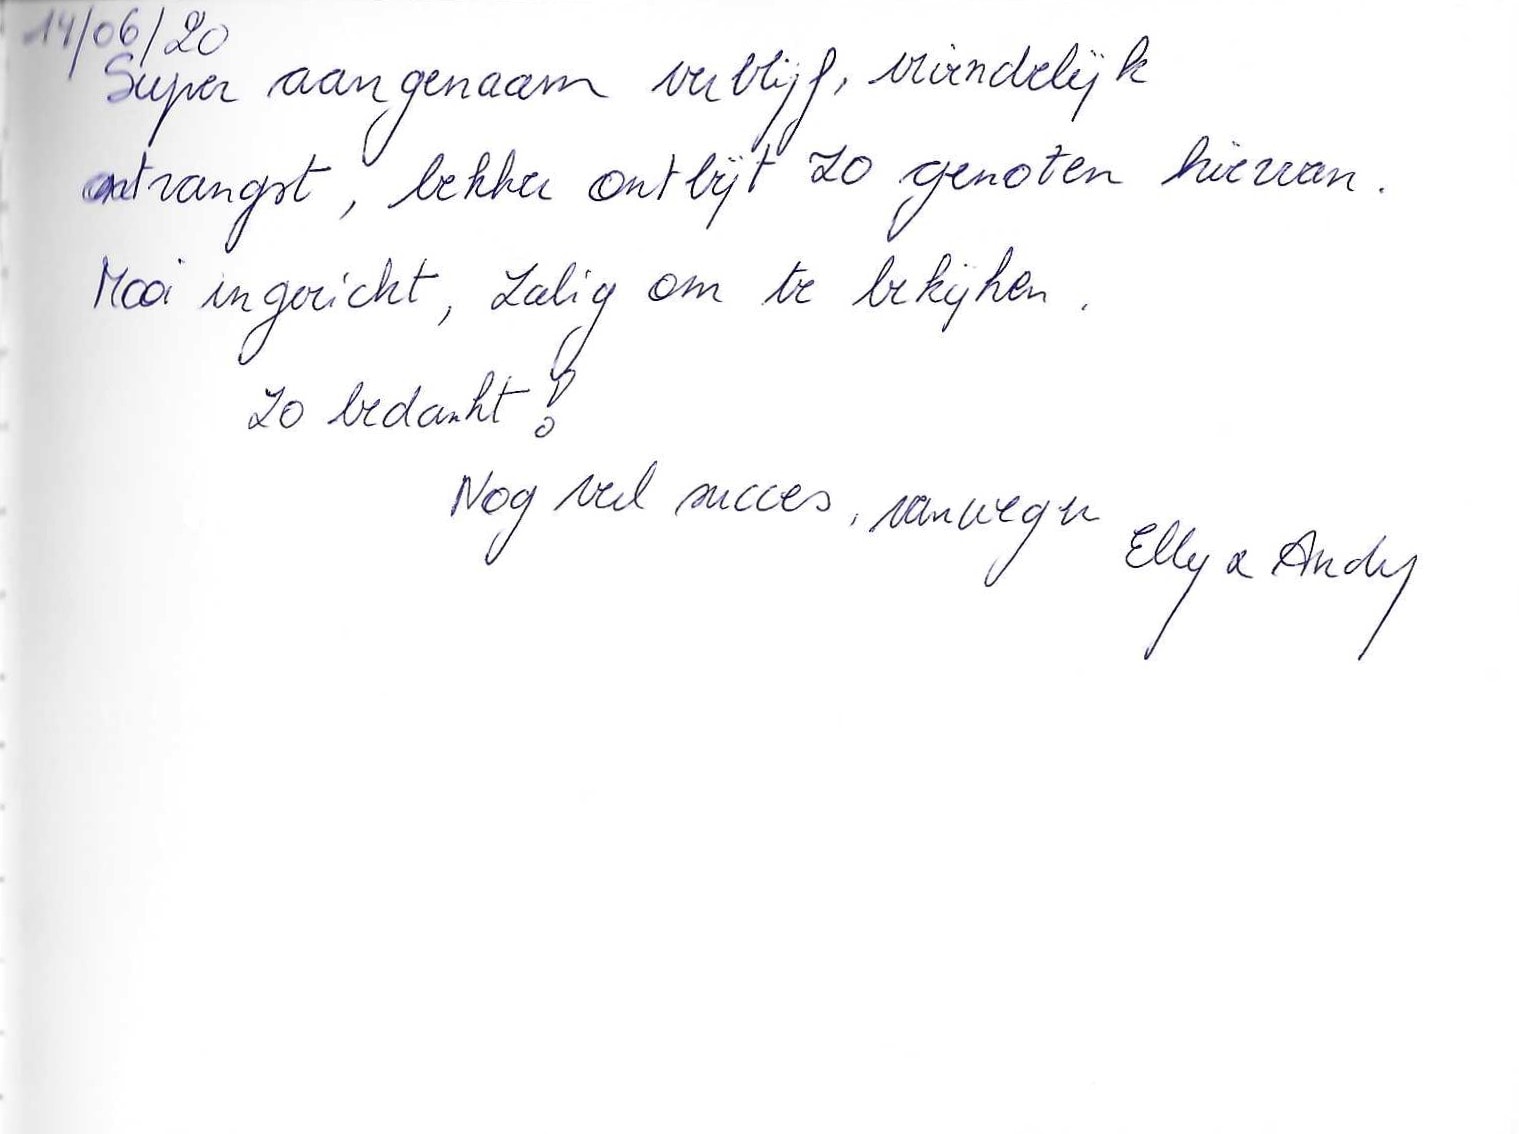 14/06/20
Super aangenaam verblijf, vriendelijk
ontvangst, lekker ontbijt zo genoten hiervan.
Mooi ingericht, zalig om te bekijken.
Zo bedankt!
Nog veel succes, vanwege
Elly & Andy